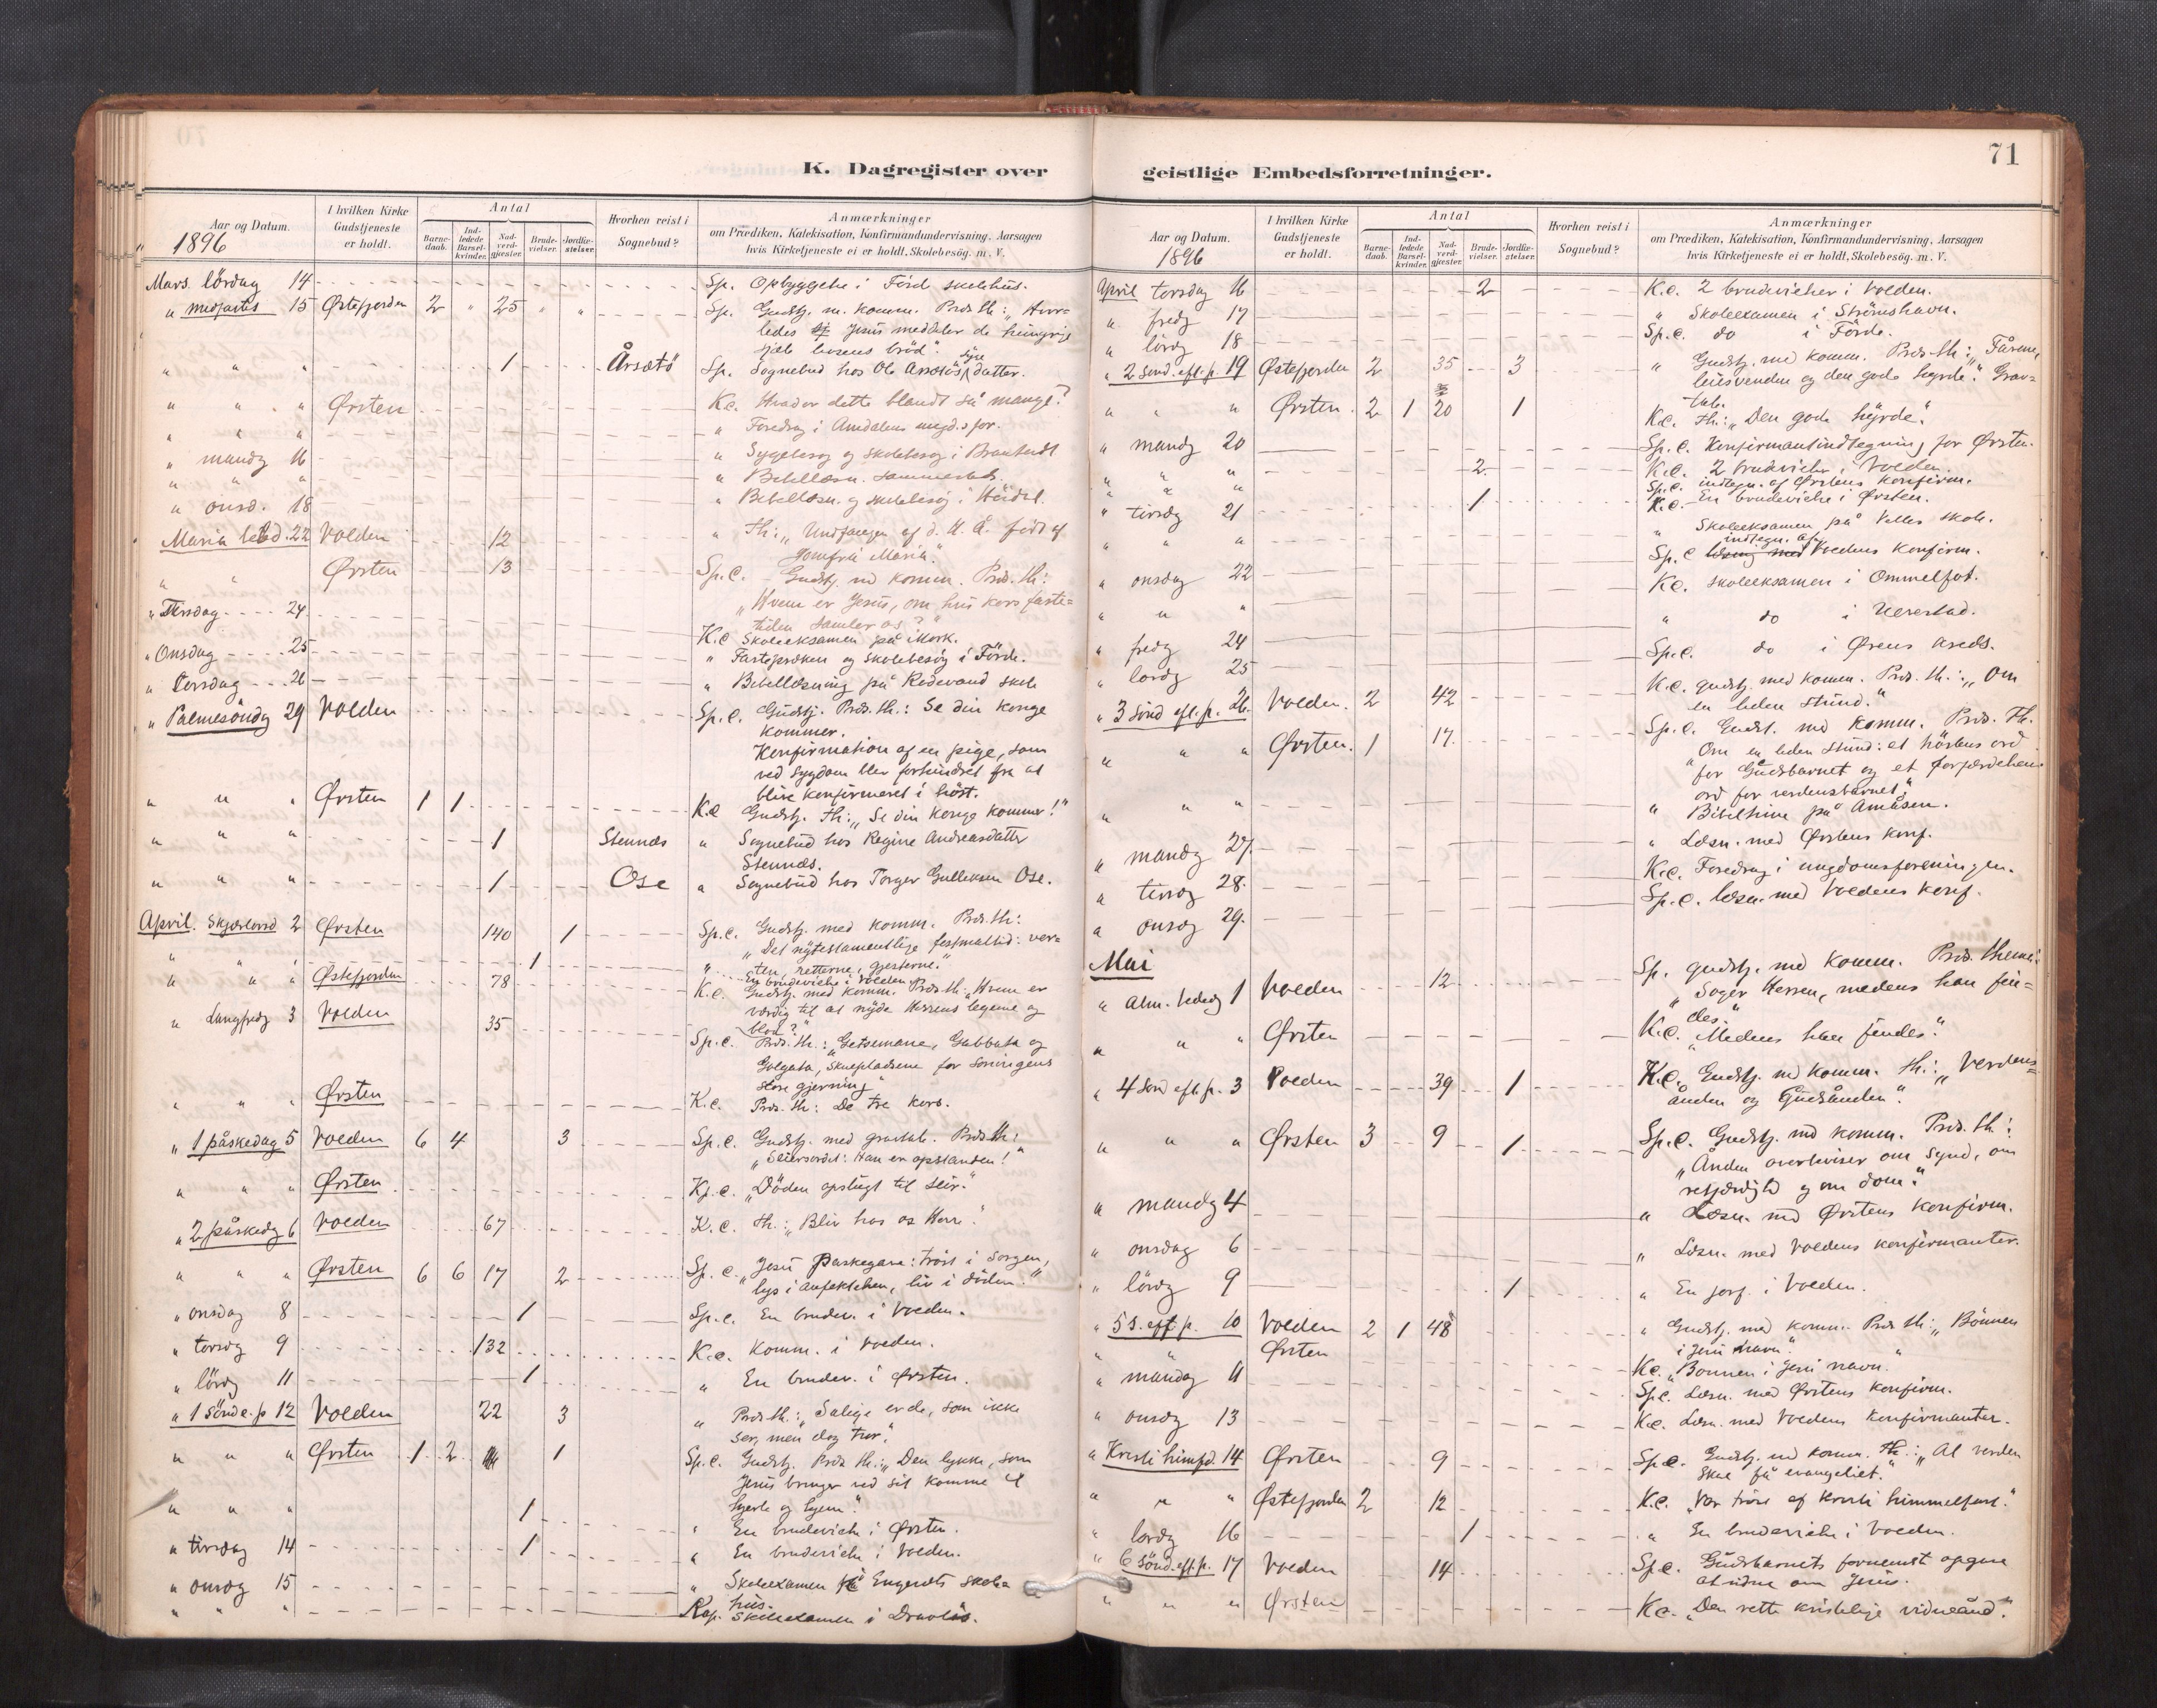 K. Dagregister over
Aar og Datum.
1896
I hvilken Kirke Gudstjeneste er holdt.
Antal
Barne-daab.
Ind-ledede Barsel-kvinder.
Nad-verd-gjester.
Brude-vielser.
Jordfæ-stelser.
Hvorhen reist i Sognebud?
Anmærkninger
om Prædiken, Katekisation, Konfirmandundervisning, Aarsagen
hvis Kirketjeneste ei er holdt, Skolebesøg. m. V.
Mars. lördag 14 Sp. Opbyggelse i Förd skolehus.
" midfaste 15 Østefjorden 2 " 25 " " Sp. Gudstj. m. komm. Præd. th.: "Hvor-
ledes Jesus meddeler de hungrige
sjæle livsens bröd".
" " " 1 Årsætö Sp. Sognebud hos Ole Årsætös syge datter.
" " " Ørsten K.c. Hvad er dette blandt så mange?
" " " " Foredrag i Åmdalens ungd.sfor.
" mandg 16 " Sygebesög og skolebesög i
" " " " Bibellæsn. sammesteds.
" onsd. 18 " Bibellæsn. og skolebesög i
Maria bebd. 22 Volden 12 " Th.: "Undfangen af d. H. Å. född af
Jomfru Maria".
" " Ørsten 13 Sp.C. Gudstj. md komm. Præd. th.:
"Hvem er Jesus, om hvis kors faste=
tiden samler os?"
" Tirsdag 24 K.C Skoleeksamen på Mork.
" Onsdag 25 " Fastepræken og skolebesög i Förde.
" Torsdag 26 " Bibellæsning på Rödevand skole
" Palmesöndg 29 Volden Sp.C. Gudstj. Præd. th.: Se din konge
kommer.
Konfirmation af en pige, som
ved sygdom blev forhindret fra at
blive konfirmeret i höst.
" " " Ørsten 1 1 K.C Gudstj. Th.: "Se din konge kommer!"
" " " 1 Stennæs " Sognebud hos Regine Andreasdatter
Stennæs.
" " " 1 Ose " Sognebud hos Torger Gulleksen Ose.
April. Skjærtorsd 2 Ørsten 140 1 Sp.C. Gudstj. med komm. Præd. th:
"Det nytestamentlige festmaltid: ver=
ten, retterne, gjesterne."
" " " 1 " En brudevielse i Volden
" " " Østefjorden 78 K.C. Gudstj. med komm. Præd. th.: "Hvem er
værdig til at nyde Herrens legeme og
blod?"
" Langfredg 3 Volden 35 Sp.C. Præd. th.: "Getsemane, Gabbata og
Golgata, skuepladsene for soningens
store gjerning"
" " " Ørsten K.C. Præd. th: De tre kors.
" 1 påskedag 5 Volden 6 4 3 Sp.C. Gudstj. med gravtale. Præd. th:
"Seiersordet: Han er opstanden!"
" " " Ørsten Kp.C. "Döden opslugt til seir."
" 2 påskedg 6 Volden 67 K.C. Th.: "Bliv hos os Herre."
" " " Ørsten 6 6 17 2 Sp.C. "Jesu Paskegave: tröst i sorgen,
lys i anfektelsen, liv i döden."
" onsdag 8 1 Sp.C. En brudev. i Volden.
" torsdg 9 132 K.C. Komm. i Volden.
" lördg 11 1 " En brudev. i Ørsten.
" 1 Sönd e. p 12 Volden 22 3 " Præd th.: "Salige er de, som ikke
ser, men dog tror."
" " " Ørsten 1 2 1 Sp.C. Gudstj. Præd. th.: "Den lykke, som
Jesus bringer ved sit komme til
hjerte og hjem".
" " " 1 " En brudevielse i Ørsten.
" tirsdag 14 1 " En brudevielse i Volden.
" onsdg 15 " Skoleexamen på Engesets skole=
hus.
" " " Kap. Skoleexamen i Dravlös.
71
geistlige Embedsforretninger.
Aar og Datum.
1896
I hvilken Kirke Gudstjeneste er holdt.
Antal
Barne-daab.
Ind-ledede Barsel-kvinder.
Nad-verd-gjæster.
Brude-vielser.
Jordfæ-stelser.
Hvorhen reist i Sognebud?
Anmærkninger
om Prædiken, Katekisation, Konfirmandundervisning, Aarsagen
hvis Kirketjeneste ei er holdt, Skolebesøg. m. V.
April torsdag 16 2 K.C. 2 brudevielser i Volden.
" fredg 17 " Skoleexamen i Strömshavn.
" lördg 18 Sp.C. do i Förde.
" 2 Sönd. eft. p. 19 Østefjorden 2 35 3 " Gudstj. md komm. Præd. th.: "Fårene,
leiesvenden og den gode hyrde." Grav=
tale.
" " " Ørsten 2 1 20 1 K.C. Th.: "Den gode hyrde."
" mandg 20 Sp.C. Konfirmantindtegning for Ørsten.
" " " 2 K.C. 2 brudevielser i Volden.
" " " Sp.C. indtegn. af Ørstens konfirm.
" tirsdg 21 1 K.C. En brudevielse i Ørsten.
" Skoleeksamen på Velle skole.
" " " Sp.C indtegn. af Voldens konfirm.
" onsdag 22 K.C. Skoleeksamen i Ommelfot.
" " " " do i Uerestad.
" fredg 24 Sp.C. do i Ørens kreds.
" lördg 25
" 3 Sönd eft. p. 26. Volden. 2 42 K.C. Gudstj. med komm. Præd. th.: "Om
en liden stund."
" " " Ørsten. 1 17. Sp.C. Gudst. md komm. Præd. Th.
"Om en liden stund: et hösttens ord
for Gudsbarnet og et forfærdelsens
ord for verdensbarnet."
" " " " Bibeltime på Åmåsen.
" mandg 27. " Læsn. med Ørstens konf.
" tirsdg 28. K.C. Foredrag i ungdomsforeningen.
" onsdg 29. Sp.C. læsn. med Voldens konf.
Mai
" Alm. bededg 1 Volden 12 Sp. Gudstj. md komm. Præd. thema:
"Søger Herren, medens han fin=
des."
" " " Ørsten K.C. "Medens han findes."
" 4 Sönd eft. p. 3 Volden 39 1 K.C. Gudstj. md komm. th.: "Verdens=
ånden og Gudsånden".
" " " Ørsten 3 9 1 Sp.C. Gudstj. md komm. Præd. th:
"Ånden overbeviser om synd, om
retfærdighd og om dom."
" mandg 4 " Læsn. md Ørstens konfirm.
" onsdag 6 " Læsn. med Voldens konfirmanter.
" lördg 9 1 " En jorf. i Volden.
" 5 S. eft p. 10 Volden 2 1 48 " Gudstj. med komm. Præd th: "Bönnen
i Jesu navn".
" " Ørsten K.C. "Bönnen i Jesu navn."
" mandag 11 Sp.C. Læsn. med Ørstens konfirm.
" onsdg 13 K.C. Læsn. med Voldens konfirmanter.
" Kristi himfd. 14 Ørsten 9 Sp.C. Gudstj. md komm. Th.: "Al verden
skal få evangeliet."
" " " Østefjorden 2 12 K.C. "Vor tröst af Kristi himmelfart."
" lördg 16 1 " En brudevielse i Volden.
" 6 Sönd. eft. p. 17 Volden 14 Sp.C. Gudsbarnets fornemst opgave
at vidne om Jesus.
" " " Ørsten K.C. "Den rette kristelige vidneånd".